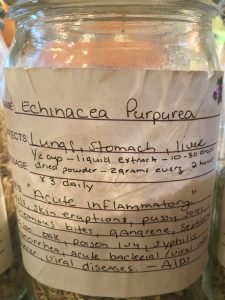 Echinacea Purpurea
Lungs, stomach, live
1/2 cup - liquid extract - 10-30 drops
dried powder - 2 grams every 2 hours
x3 daily
"Acute inflammatory"
skin eruptions, pussy sores
bites, gangrene, septic
oak, poison ivy, syphilis
acute bacterial/viral
viral diseases. - AIDS